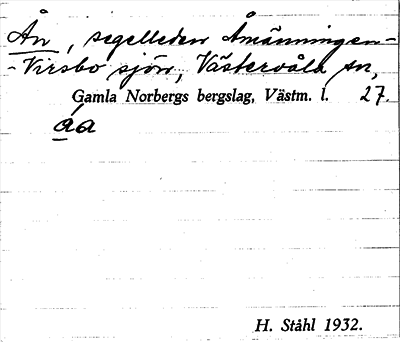 Ån, segelleden Åmänningen-
-Virsbo sjön, Västervåla sn,
Gamla Norbergs bergslag, Västm. l. 27.
åa
H. Ståhl 1932.